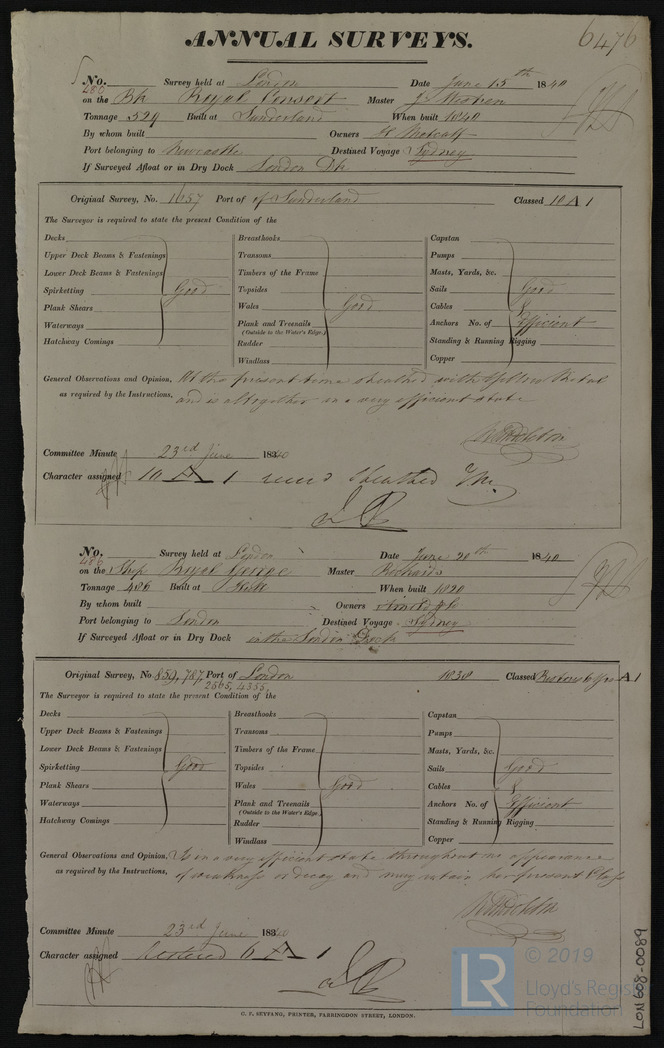 6476
ANNUAL SURVEYS.
No. 480 Survey held at London Date June 15th 1840
on the Bk Royal Consort Master J.
Tonnage 529 Built at Sunderland When built 1840
By whom built Owners H Metcalf
Port belonging to Newcastle Destined Voyage Sydney
If Surveyed Afloat or in Dry Dock London Dk
Original Survey, No. 1657 Port of of Sunderland Classed 10 A 1
The Surveyor is required to state the present Condition of the
Decks Breasthooks Capstan
Upper Deck Beams & Fastenings Transoms Pumps
Lower Deck Beams & Fastenings Timbers of the Frame Masts, Yards, &c.
Spirketting Good Topsides Sails Good
Plank Shears Wales Good Cables &
Waterways Plank and Treenails Anchors No. of Efficient
(Outside to the Water's Edge.)
Hatchway Comings Rudder Standing & Running Rigging
Windlass Copper
General Observations and Opinion, At the present time sheathed with Yellow Metal
as required by the Instructions, and is altogether in a very efficient state
Committee Minute 23rd June 18340
Character assigned 10 A 1 sheathed Y.M.
No. 486 Survey held at London Date June 20th 1840
on the Ship Royal George Master Richards
Tonnage 486 Built at Hull When built 1820
By whom built Owners Arnold & Co
Port belonging to London Destined Voyage Sydney
If Surveyed Afloat or in Dry Dock in the London Dock
Original Survey, No. 859, 787, Port of London 1838 Classed Restored 6 Yrs A 1
2565, 4355,
The Surveyor is required to state the present Condition of the
Decks Breasthooks Capstan
Upper Deck Beams & Fastenings Transoms Pumps
Lower Deck Beams & Fastenings Timbers of the Frame Masts, Yards, &c.
Spirketting Good Topsides Sails Good
Plank Shears Wales Good Cables &
Waterways Plank and Treenails Anchors No. of Efficient
(Outside to the Water's Edge.)
Hatchway Comings Rudder Standing & Running Rigging
Windlass Copper
General Observations and Opinion, Is in a very efficient state throughout no appearance
as required by the Instructions, of weakness or decay and may retain her present Class
Committee Minute 23rd June 18340
Character assigned Restored 6 A 1
C. F. SEYFANG, PRINTER, FARRINGDON STREET, LONDON.
LR © 2019
Lloyd's Register
Foundation
LON608-0089